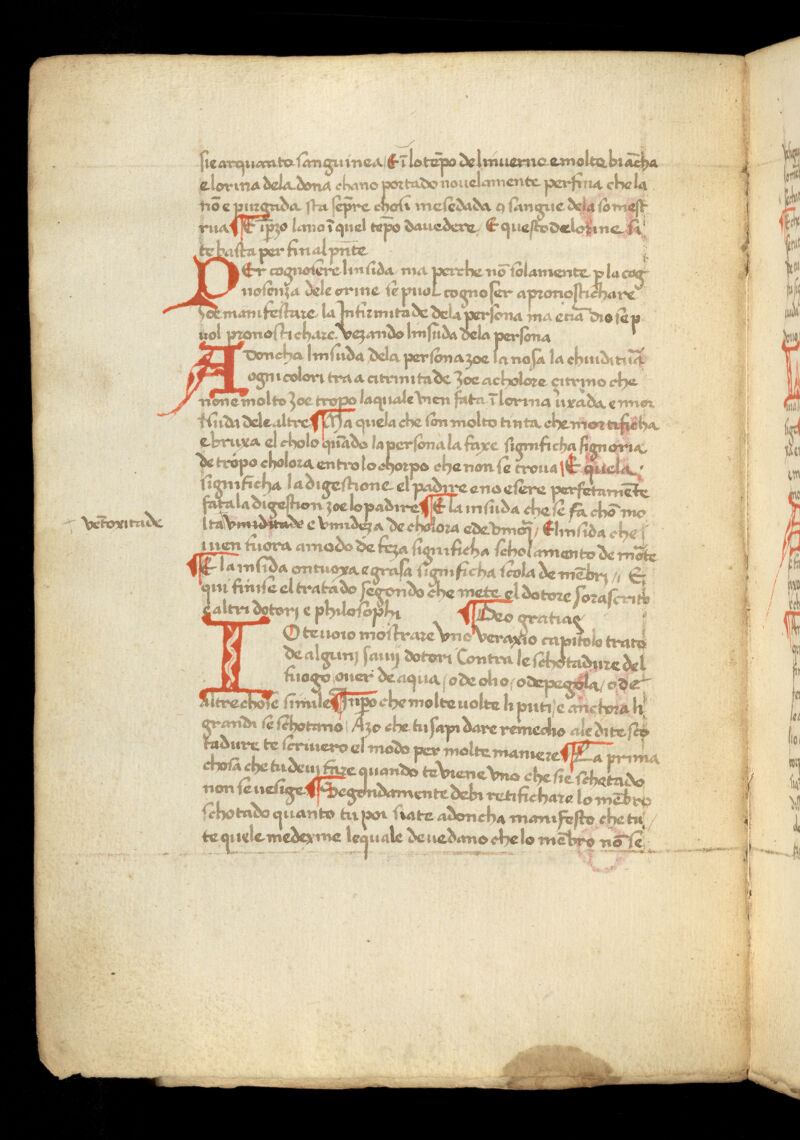 sie arquanto sanguinea / E ī lo tēpo de linuerno e molto biācha
e lorina dela dona chano portado nouelamente perfina che la
nō e purgada sta sēpre chosi mesedada q sangue dela so mest
rua ¶ E īpzo lano ī quel tēpo dauedere / E questo de lorine si
te basta per final pñte
PEr cognosere linsida ma perche nō solamente p la cog
nosenza dele orine se puol cognoser a pronostichare
zoe manifestare la Infirmitade dela persona ma etiā dio se p
uol pronostichare vezando linsuda dela persona
ADoncha linsuda dela persona zoe la nosa la
ogni colori tra a citrinitade zoe a cholore citrino che
none molto zoe tropo laquale vien fata ī lorina
insuda dele altre ¶ Ma quela che son molto tinta che mortificha
e bruxa el cholo quādo la persona la faxe significha signoria
de tropo cholora entro lo chorpo che non se troua / E quela
significha la digestione el padire eno esere perfetamēte
fata la digestion zoe lo padire ¶ E la insuda che se fa chō mo
lta vmiditade e vmideza de cholora ede vmori / E linsida che
vien fuora amodo de feza significha scholamento de mōte
¶ E la insida ontuoxa e grasa significha scola de mēbri // E
qui finise el tratado segondo che mete el dotore sorascrito
e altri dotori e philosophi ¶ Deo gratias
IO te voio mostrare vno veraxio capitolo trato
de algunj sauij dotori Contra le schotadure del
fuogo ouer de aqua / o de olio / o de pegola / o de
altre chose simile ¶ Inpo che molte uolte li puti / e anchora li
grandi se schotano / Azo che tu sapi dare remedio ale dite sco
tadure te scriuero el modo per molte maniere ¶ La prima
chosa che tu deuj fare quando te viene vno che sie schotado
non se uesige ¶ Segondamente debi retifichare lo mēbro
schotado quanto tu poi siate adoncha manifesto che tu
te quele medexme lequale deuedano che lo mēbro nō se